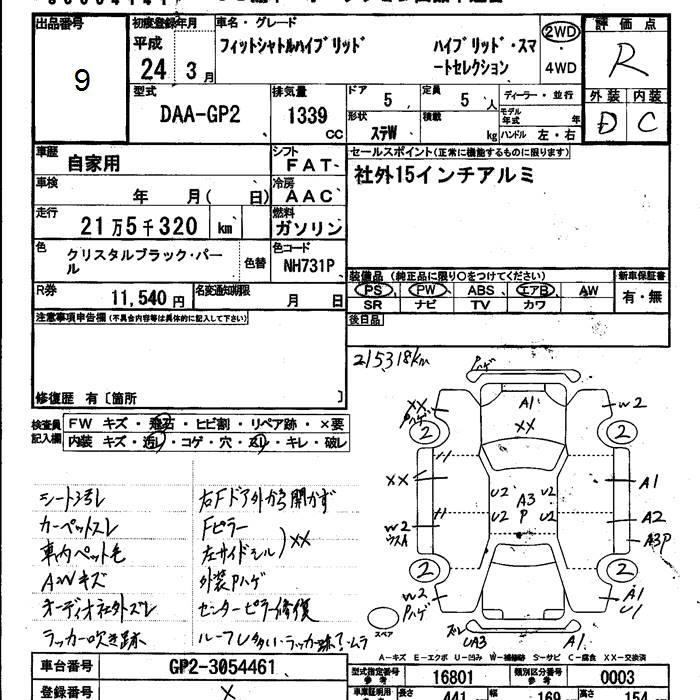 出品番号
9
初度登録年月
平成
24 3 月
車名・グレード
フィットシャトルハイブリッド ハイブリッド・スマートセレクション
2WD
4WD
評価点
R
外装 内装
D C
型式
DAA-GP2
排気量
1339
CC
ドア
5
定員
5 人
形状
ステW
積載
kg
ディーラー・並行
モデル年式 年
ハンドル 左・右
車歴
自家用
シフト
FAT
車検
年 月( 日)
冷房
AAC
走行
21万5千320 km
燃料
ガソリン
色
クリスタルブラック・パール
色替
色コード
NH731P
R券
11,540 円
名変通知期限
月 日
セールスポイント(正常に機能するものに限ります)
社外15インチアルミ
装備品 (純正品に限り〇をつけてください)
PS PW ABS エアB AW
SR ナビ TV カワ
新車保証書
有・無
後日品
注意事項申告欄(不具合内容等は具体的に記入して下さい)
修復歴 有〔箇所 〕
検査員記入欄
FW キズ・飛石・ヒビ割・リペア跡・×要
内装 キズ・汚レ・コゲ・穴・スレ・キレ・破レ
215318km
シート汚レ
カーペットスレ
車内ペット毛
AWキズ
オーディオ社外ズレ
ラッカー吹き跡
右Fドア外から開かず
Fピラー
左サイドシル
XX
外装Pハゲ
センターピラー修復
Pハゲ
A1
XX
XX
Pハゲ
W2
2
2
XX
A1
U2
U2
A3
P
U2
U2
W2
A2
A3P
2
2
W2
Pハゲ
A1
U1
スペア
UA3
A1
A-キズ E-エクボ U-凹み W-補修跡 S-サビ C-腐食 XX-交換済
車台番号
GP2-3054461
登録番号
X
型式指定番号
16801
類別区分番号
0003
長さ
441
幅
169
高さ
154